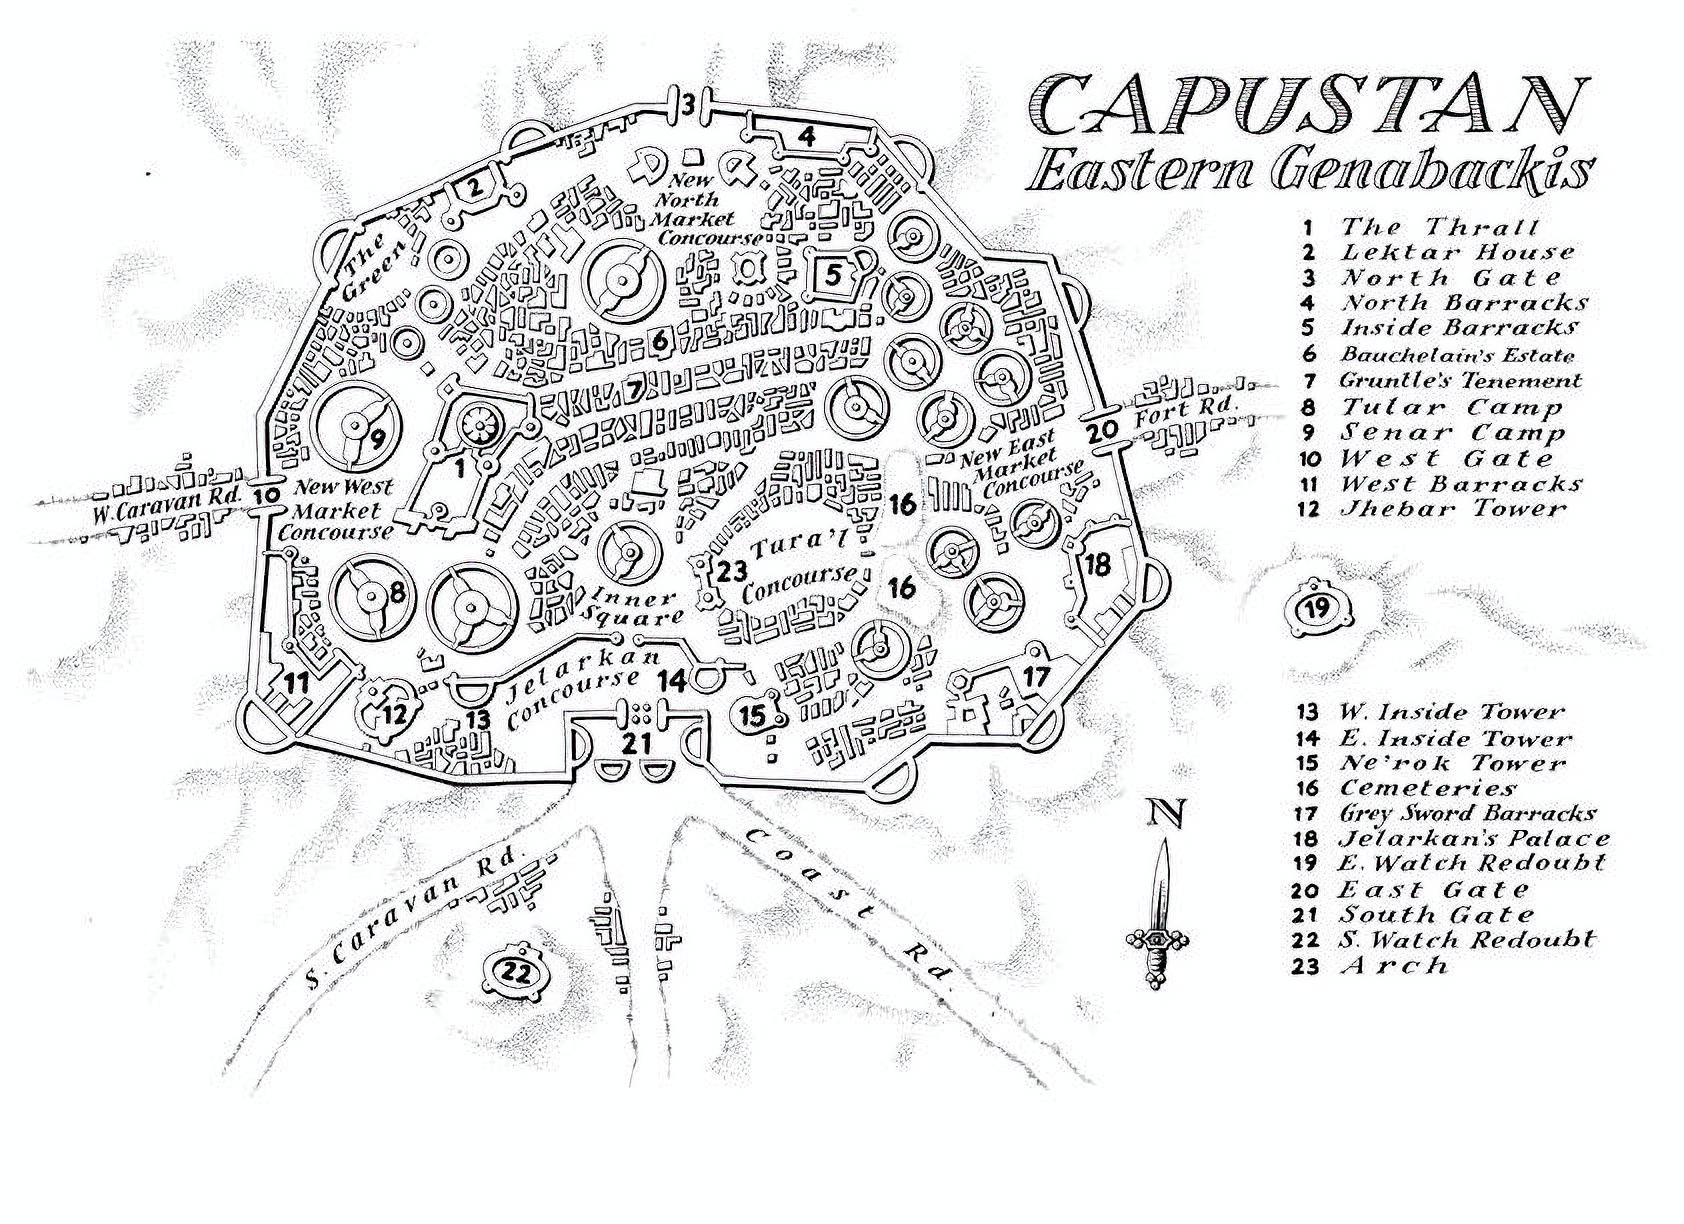 CAPUSTAN
Eastern Genabackis
1 The Thrall
2 Lektar House
3 North Gate
4 North Barracks
5 Inside Barracks
6 Bauchelain's Estate
7 Gruntle's Tenement
8 Tular Camp
9 Senar Camp
10 West Gate
11 West Barracks
12 Jhebar Tower
13 W. Inside Tower
14 E. Inside Tower
15 Ne'rok Tower
16 Cemeteries
17 Grey Sword Barracks
18 Jelarkan's Palace
19 E. Watch Redoubt
20 East Gate
21 South Gate
22 S. Watch Redoubt
23 Arch
3
4
2
New
North
Market
Concourse
The
Green
5
6
7
9
1
20
Fort Rd.
W. Caravan Rd.
10
New West
Market
Concourse
New East
Market
Concourse
16
Tura'l
Concourse
23
16
18
19
8
Inner
Square
11
12
13
Jelarkan
Concourse
14
15
17
21
N
S. Caravan Rd.
Coast Rd.
22